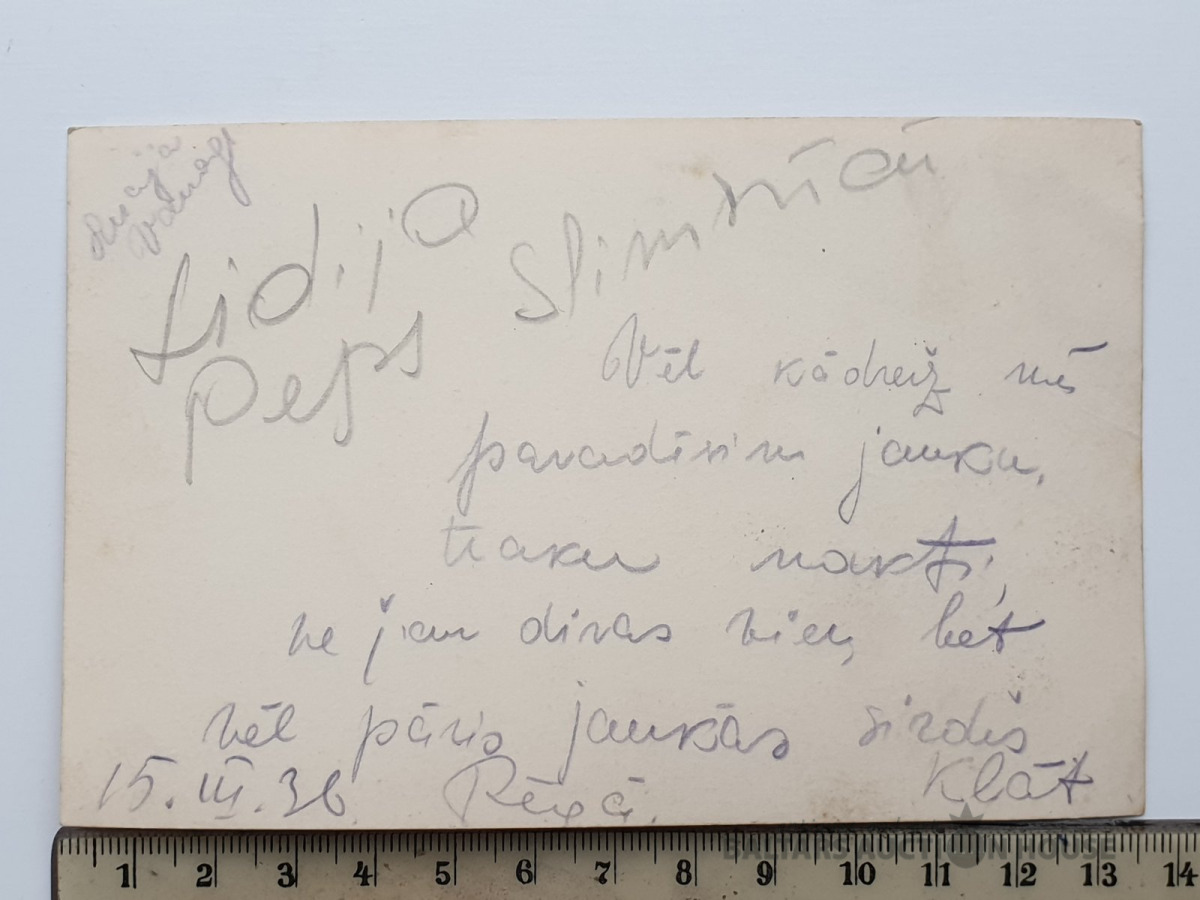 Lidija
Peps
Vēl kādreiz mēs
pavadīsim jauku,
traku nakti,
ne jau divas vien, bet
vēl pāris jaukās sirdis
klāt
15. III. 36 Rēzā.
BALTARS AUCTION HOUSE
1 2 3 4 5 6 7 8 9 10 11 12 13 14